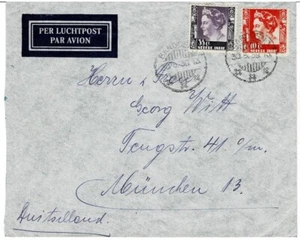 PER LUCHTPOST
PAR AVION
NEDERL. INDIE
NEDERL. INDIE
10 CT
Herrn
Georg Witt
Tengstr. 41 o/m.
München 13.
Duitschland.